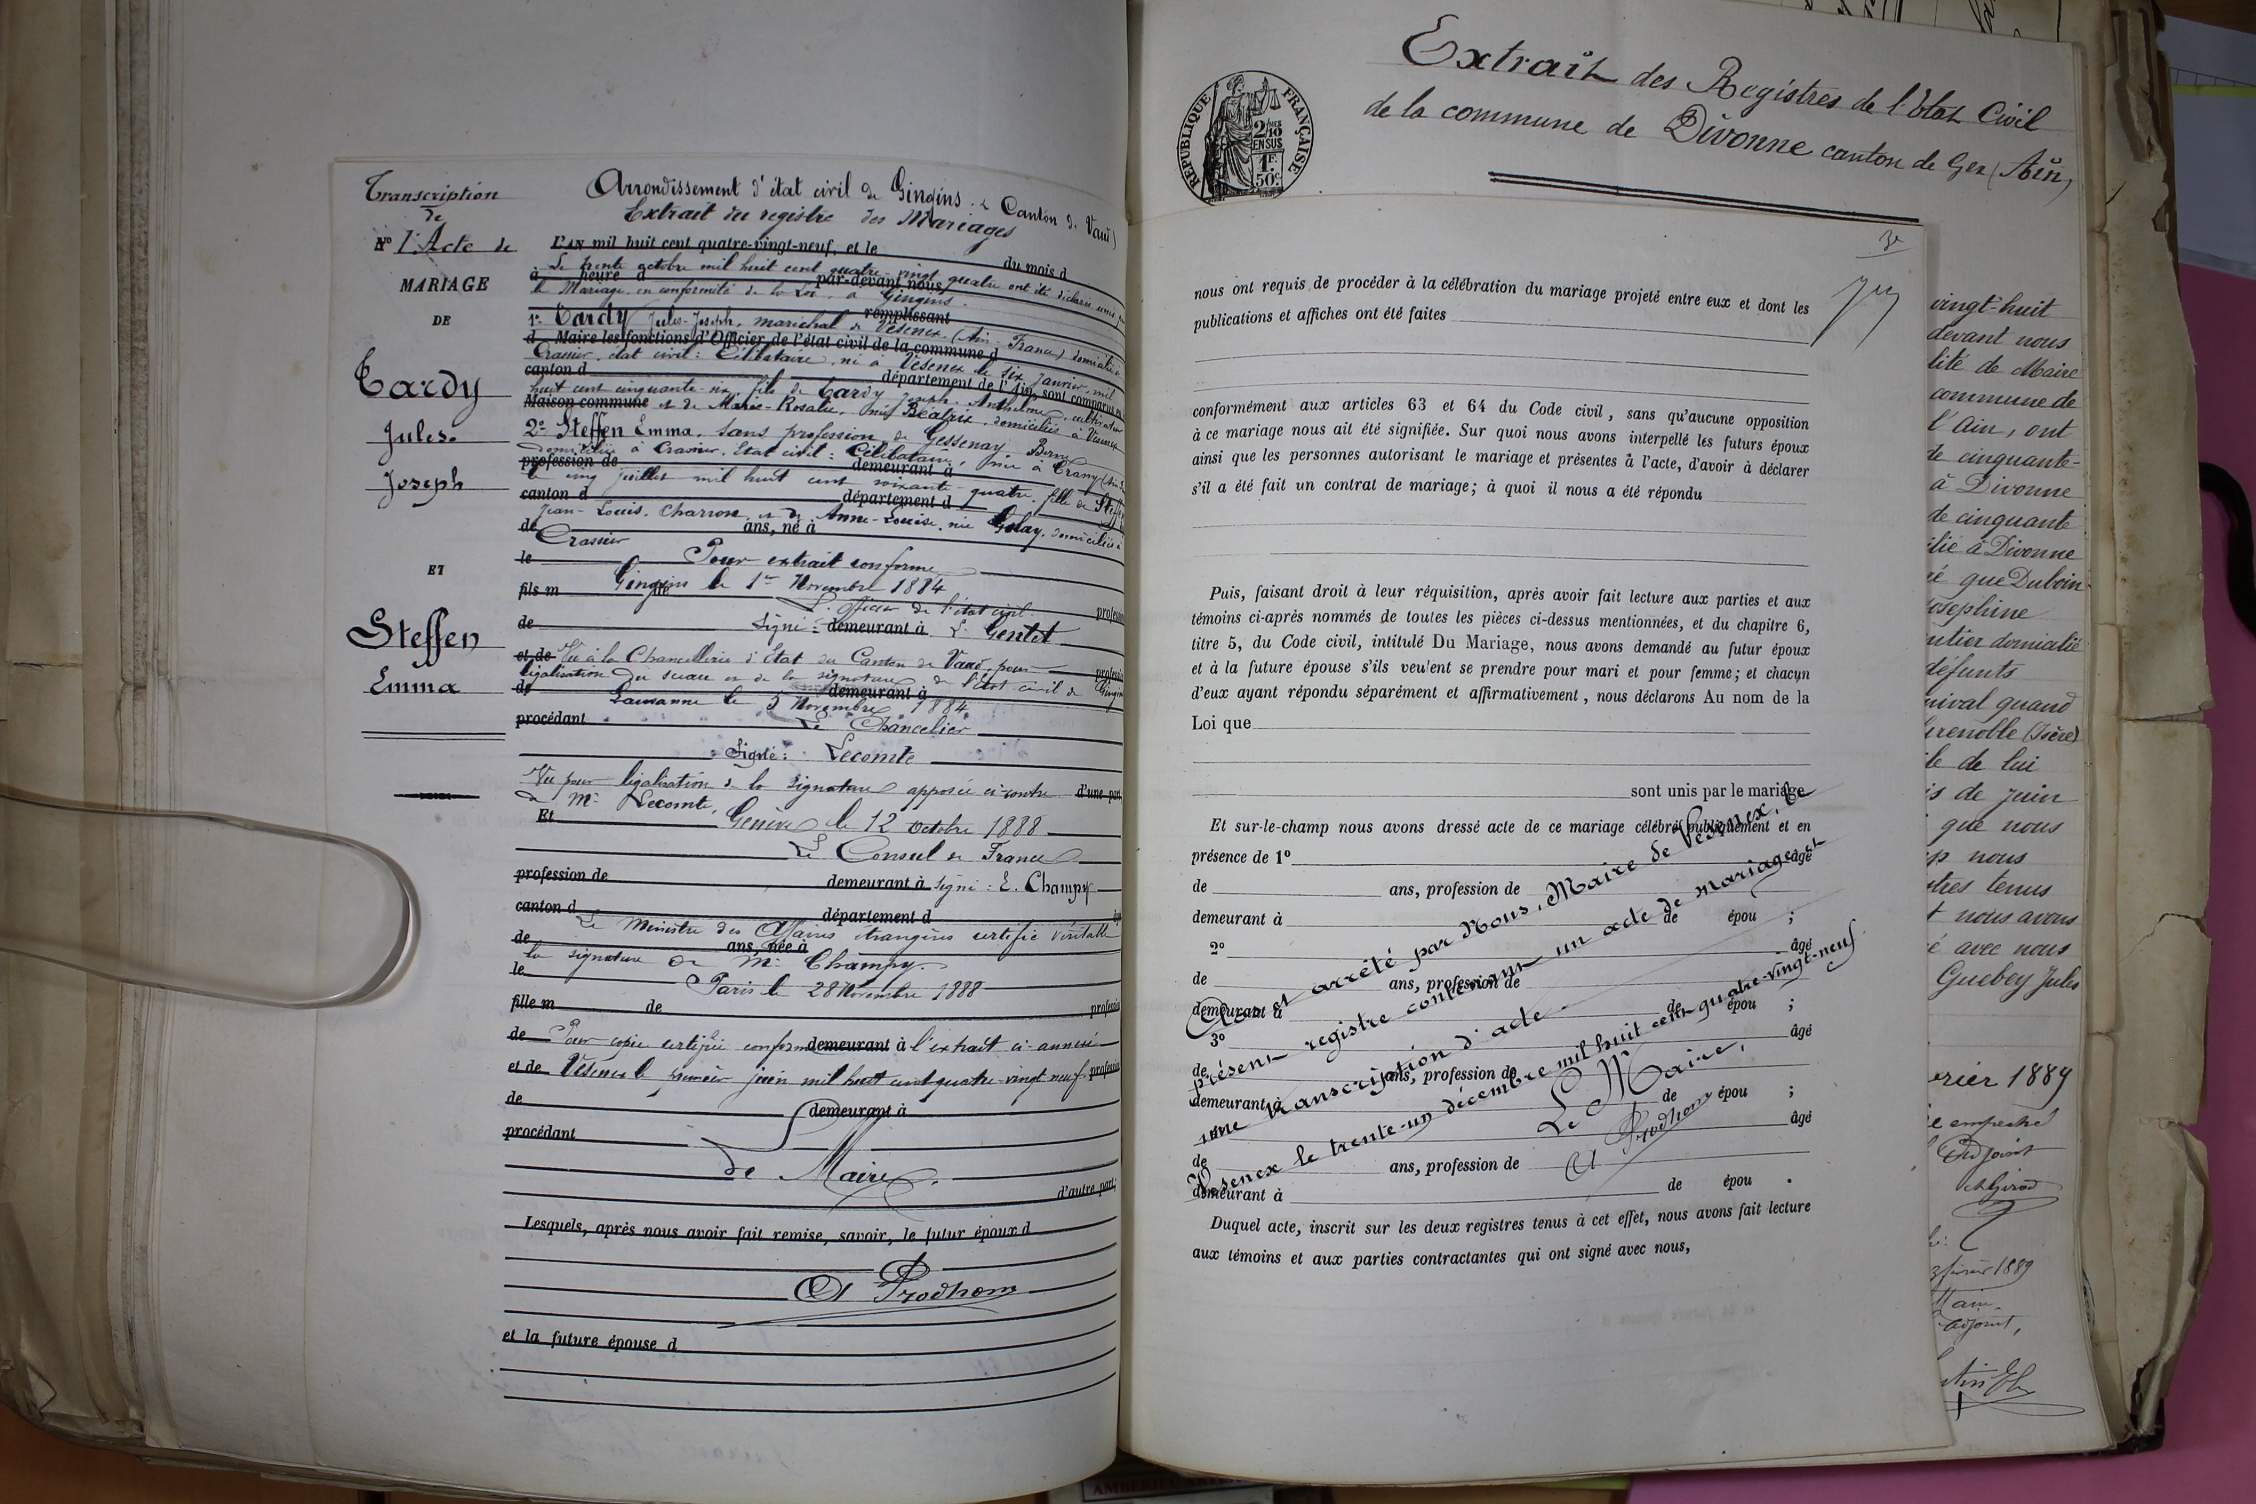 Transcription
de
N° l'Acte de
MARIAGE
DE
Tardy
Jules
Joseph
ET
Steffen
Emma
Arrondissement d'état civil de Gingins (Canton de Vaud)
Extrait du registre des Mariages
L'AN mil huit cent quatre-vingt-neuf, et le du mois d
Le trente octobre mil huit cent quatre-vingt quatre ont été déclarés unis
à heure d par-devant nous
le Mariage, en conformité de la Loi, à Gingins.
remplissant
1° Tardy Jules-Joseph, maréchal de Vesenex (Ain France) domicilié
d Maire les fonctions d'Officier de l'état civil de la commune d
Crassier, état civil: Célibataire, né à Vesenex le six Janvier mil
canton d département de l'Ain, sont comparus
huit cent cinquante-six, fils de Tardy Joseph-Anthelme, cultivateur
Maison commune et de Marie-Rosalie, née Béatrix, domiciliés à Vesenex
2° Steffen Emma, sans profession, de Gessenay, Berne
domiciliée à Crassier, Etat civil: Célibataire, née à Crans
profession de demeurant à
le cinq juillet mil huit cent soixante-quatre, fille de
canton d département d
Jean-Louis, Charron, et de Anne-Louise, née Golay, domiciliés à
de ans, né à
Crassier
le Pour extrait conforme
Gingins le 1er Novembre 1884
fils m
L'officier de l'état civil profession
de Signé: demeurant à L. Gentet
et de Vu à la Chancellerie d'Etat du Canton de Vaud, pour
légalisation du sceau et de la signature de l'état civil de Gingins
de demeurant à
Lausanne le 5 Novembre 1884
procédant Le Chancelier
Signé: Lecomte
Vu pour légalisation de la signature apposée ci-contre d'une part
de Mr Lecomte,
Et Genève le 12 octobre 1888
Le Consul de France
profession de demeurant à Signé: E. Champy
canton d département d
Le Ministre des Affaires étrangères certifie véritable
de ans, née à
la signature de Mr Champy.
le Paris le 28 Novembre 1888
fille m de profession
de Pour copie certifiée conforme demeurant à l'extrait ci-annexé
et de Vesenex le premier juin mil huit cent quatre-vingt neuf profession
de demeurant à
procédant
Le Maire,
d'autre part;
Lesquels, après nous avoir fait remise, savoir, le futur époux d
A Prodhom
et la future épouse d
Extrait des Registres de l'Etat Civil
de la commune de Divonne canton de Gex (Ain)
RÉPUBLIQUE FRANÇAISE
2/10
EN SUS
1F.
50c
3e
nous ont requis de procéder à la célébration du mariage projeté entre eux et dont les
publications et affiches ont été faites
conformément aux articles 63 et 64 du Code civil, sans qu'aucune opposition
à ce mariage nous ait été signifiée. Sur quoi nous avons interpellé les futurs époux
ainsi que les personnes autorisant le mariage et présentes à l'acte, d'avoir à déclarer
s'il a été fait un contrat de mariage; à quoi il nous a été répondu
Puis, faisant droit à leur réquisition, après avoir fait lecture aux parties et aux
témoins ci-après nommés de toutes les pièces ci-dessus mentionnées, et du chapitre 6,
titre 5, du Code civil, intitulé Du Mariage, nous avons demandé au futur époux
et à la future épouse s'ils veulent se prendre pour mari et pour femme; et chacun
d'eux ayant répondu séparément et affirmativement, nous déclarons Au nom de la
Loi que
sont unis par le mariage
Et sur-le-champ nous avons dressé acte de ce mariage célébré publiquement et en
présence de 1° âgé
de ans, profession de
demeurant à de épou ;
2° âgé
de ans, profession de
demeurant à de épou ;
3° âgé
de ans, profession de
demeurant à de épou ;
âgé
de ans, profession de
demeurant à de épou .
Duquel acte, inscrit sur les deux registres tenus à cet effet, nous avons fait lecture
aux témoins et aux parties contractantes qui ont signé avec nous,
Clos et arrêté par Nous, Maire de Vesenex, le
présent registre contenant un acte de mariage et
une transcription d'acte
Vesenex le trente-un décembre mil huit cent quatre-vingt-neuf
Le Maire,
A Prodhom
vingt-huit
devant nous
lité de Maire
commune de
l'Ain, ont
de cinquante-
à Divonne
de cinquante
ilié à Divonne
é que Duboin
Josephine
utier domicilié
défunts
nival quand
Grenoble (Isère)
le de lui
is de juin
que nous
nous
tres tenus
t nous avons
é avec nous
Guebey Jules
vrier 1889
empêché
Adjoint
février 1889
Adjoint,